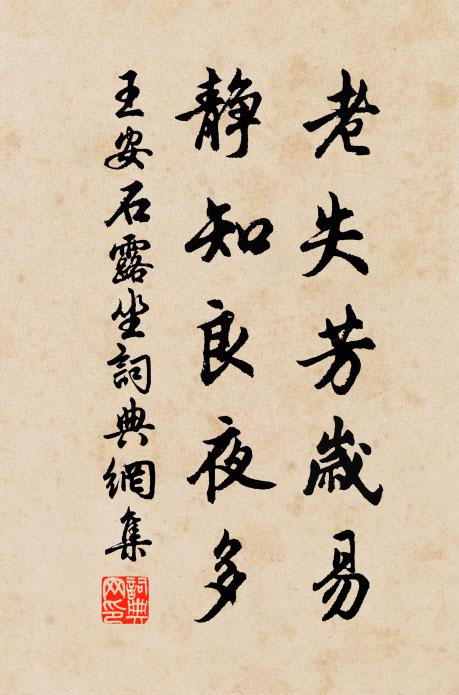 老失芳歲易
静知良夜多
王安石露坐詞典網集
詞典
网印